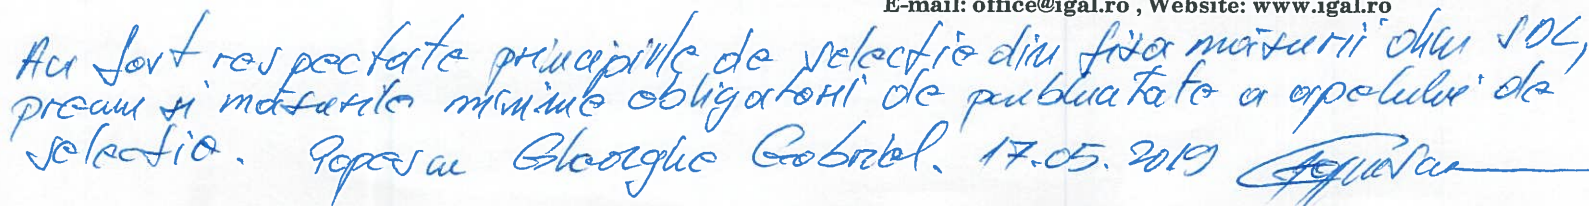 E-mail: office@igal.ro , Website: www.igal.ro
Au fost respectate principiile de selecție din fișa măsurii din SDL,
precum și măsurile minime obligatorii de publicitate a apelului de
selecție. Popescu Gheorghe Gabriel. 17.05.2019